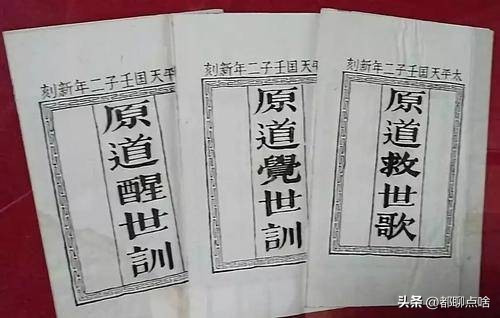 平天国壬子二年新刻
原道醒世訓
平天国壬子二年新刻
原道覺世訓
太平天国壬子二年新刻
原道救世歌
头条 @都聊点啥